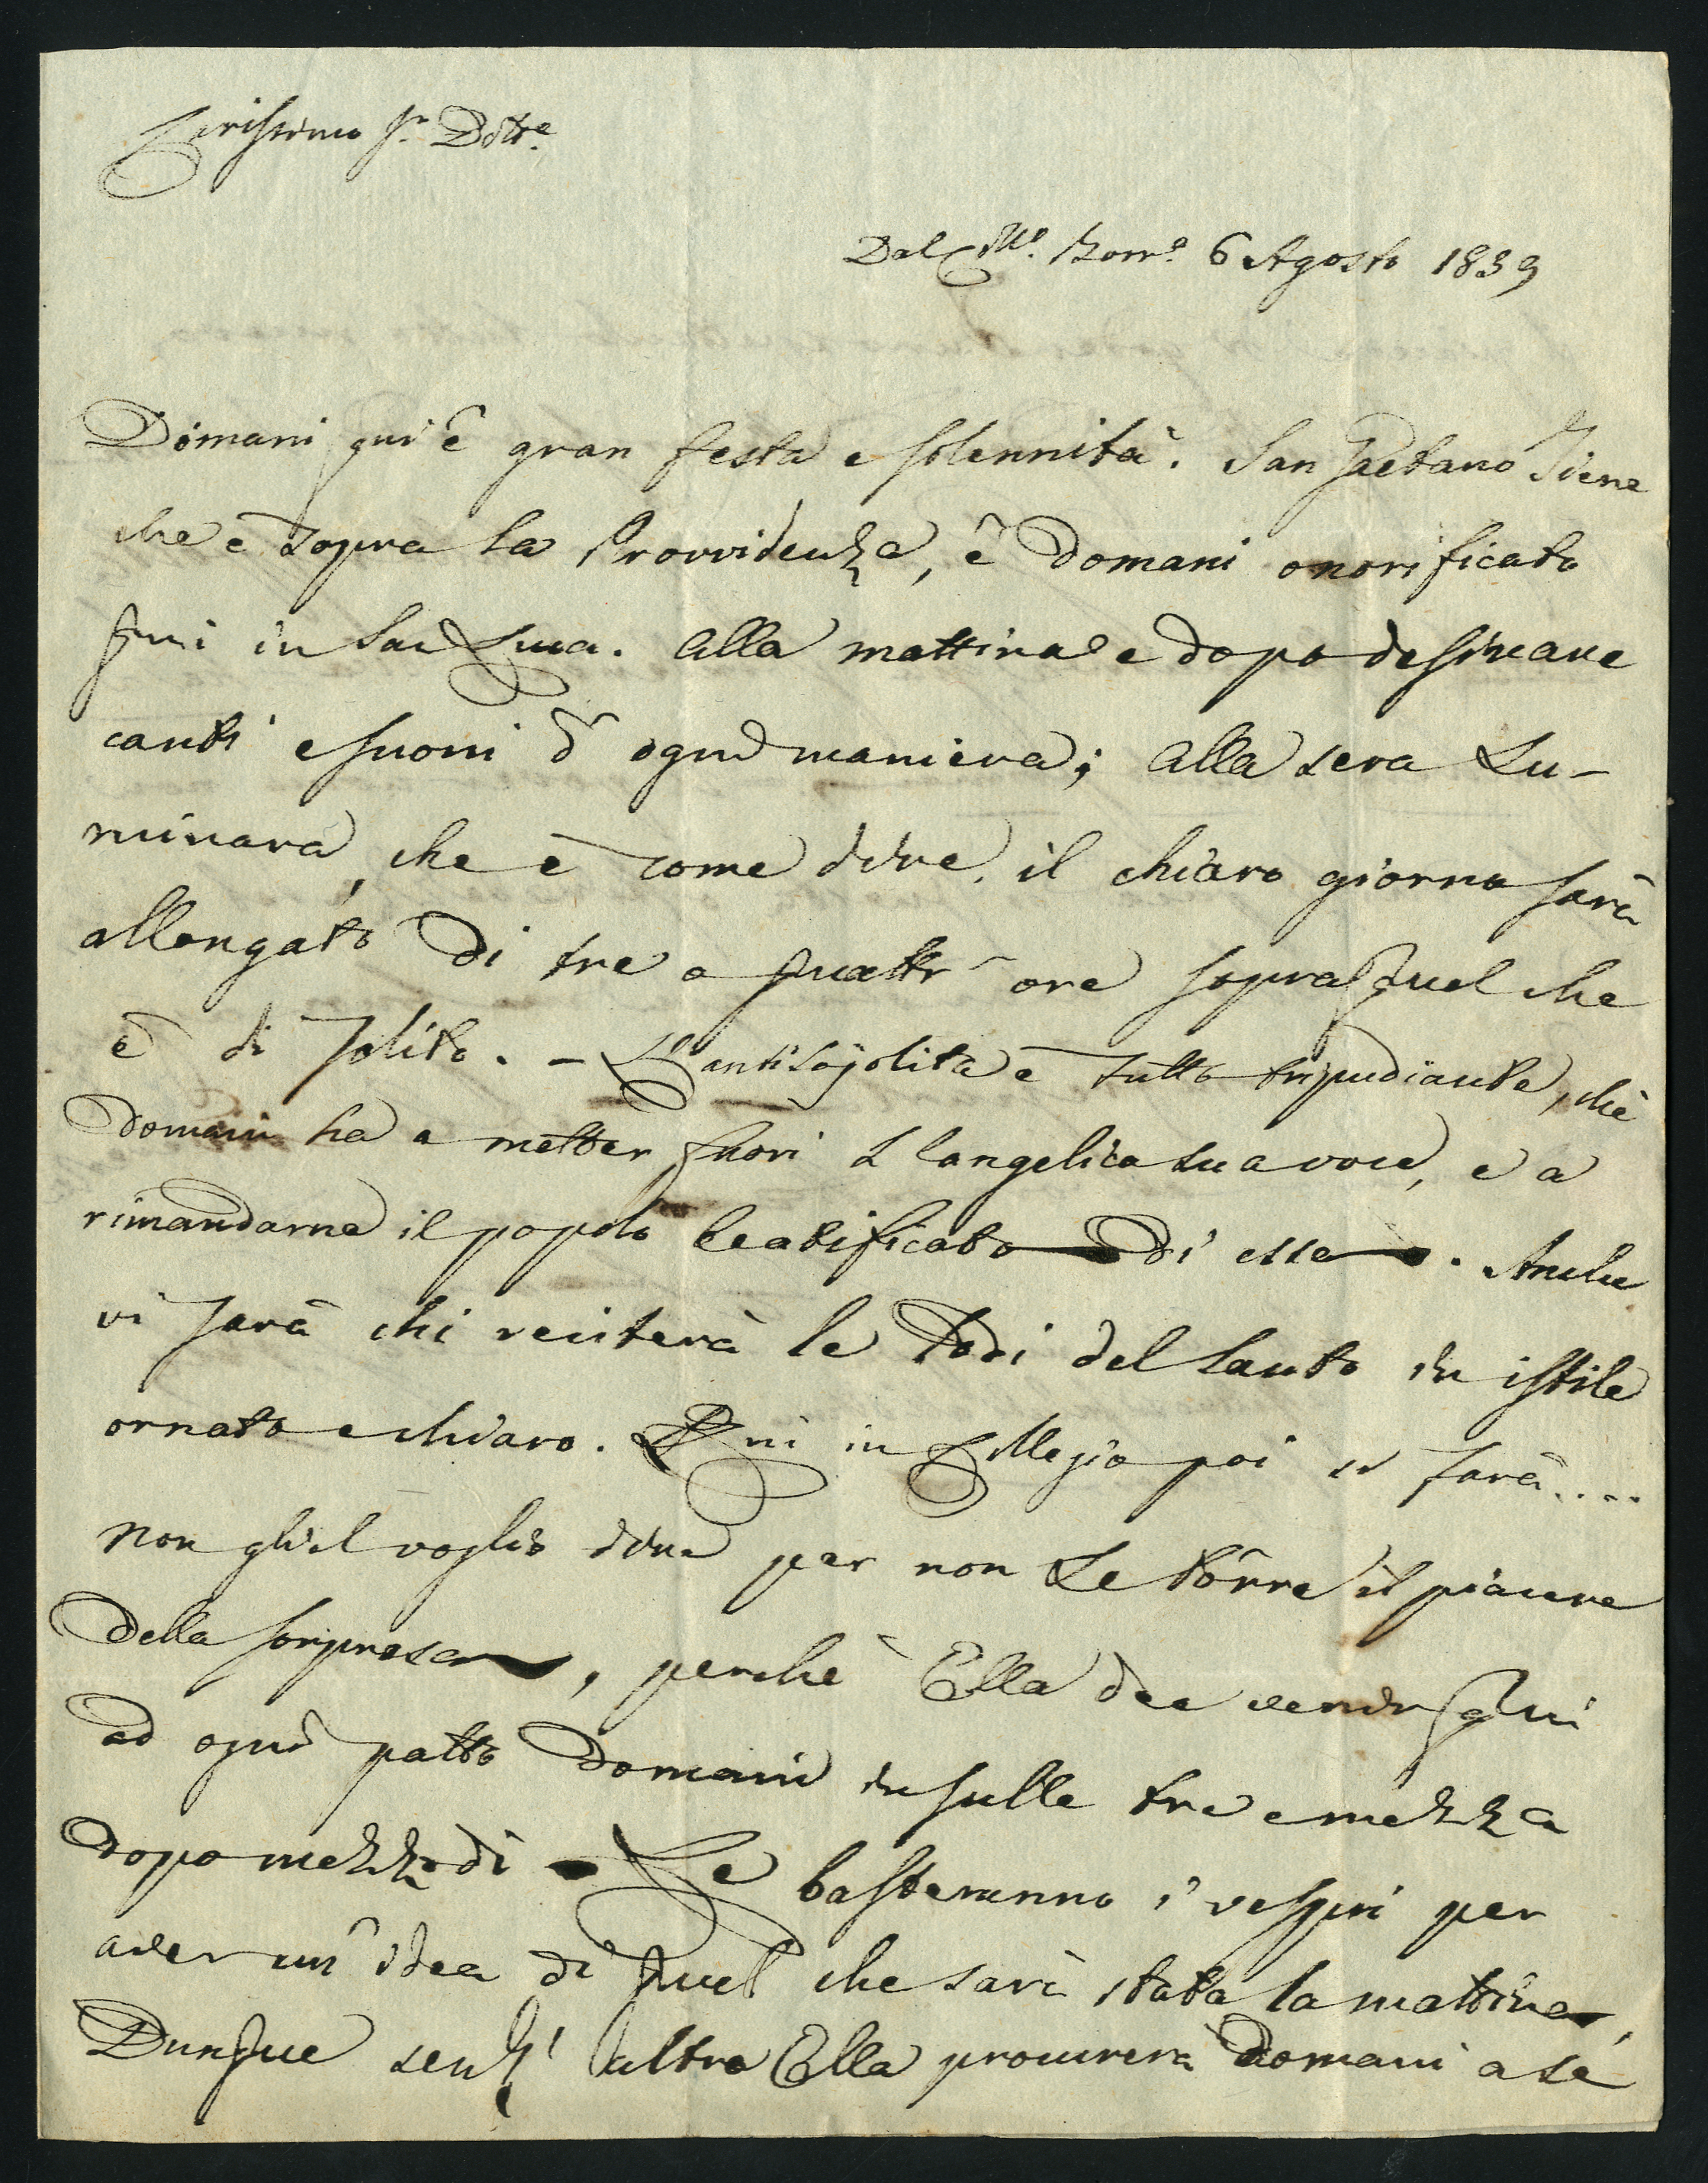 Carissimo Sr. Dottre.
Dal Colle. Borro. 6 Agosto 1839
Domani qui è gran festa e solennità. San Gaetano Tiene
che è sopra la Provvidenza, è domani onorificato
qui in San Luca. Alla mattina e dopo desinare
canti e suoni d' ogni maniera; alla sera Lu-
minara, che è come dire, il chiaro giorno sarà
allongato di tre o quattr' ore sopra quel che
è di solito. - L' è tutto tripudiante, chè
domani ha a metter fuori l' angelica sua voce, e a
rimandarne il popolo beatificato di essa. Anche
vi sarà chi reciterà le lodi del Santo in istile
ornato e chiaro. Qui in Collegio poi si farà....
non gliel voglio dire per non Le tôrre il piacere
della sorpresa, perchè Ella dee venir qui
ad ogni patto domani in sulle tre e mezza
dopo mezzodì - Le basteranno i vespri per
aver un' idea di quel che sarà stata la mattina,
Dunque senz' altro Ella procurerà domani a se